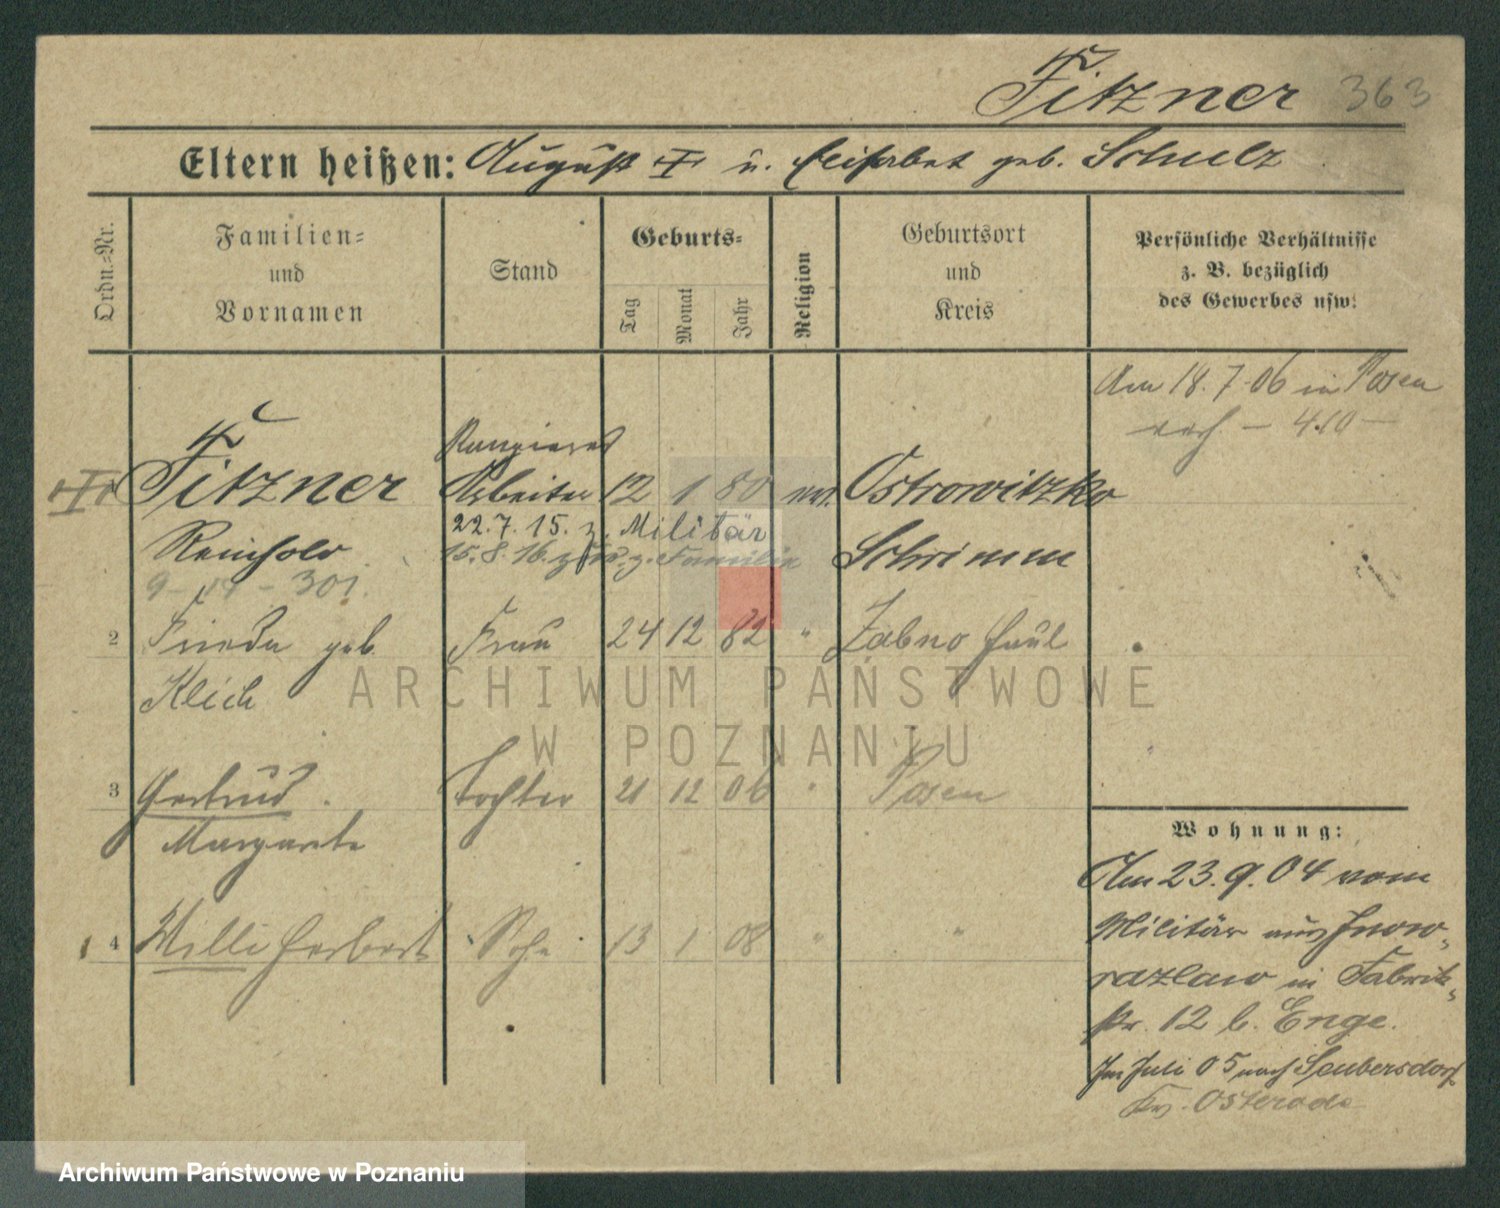 Fitzner 363
Eltern heißen: August u. Elisabet geb. Schulz
Ordn.-Nr.
Familien-
und
Vornamen
Stand
Geburts-
Tag
Monat
Jahr
Religion
Geburtsort
und
Kreis
Persönliche Verhältnisse
z. B. bezüglich
des Gewerbes usw.
Am 18. 7. 06 in Posen
Rangierer
Fitzner Arbeiter 12 1 80 ev. Ostrowitzko
22. 7. 15. z. Militär
Reinhold 15. 8. 16. z. Familie Schrimm
301.
2 Frieda geb. Frau 24 12 82 " Zabno
Klich
3 Gertrud Tochter 21 12 06 " Posen
Margarete
4 Willi Herbert Sohn 13 1 08 " "
Wohnung:
Am 23. 9. 04 vom
Militär aus Inow-
razlaw in Fabrik-
str. 12 b. Enge.
Im Juli 05 nach Seubersdorf
Kr. Osterode
ARCHIWUM PAŃSTWOWE
W POZNANIU
Archiwum Państwowe w Poznaniu